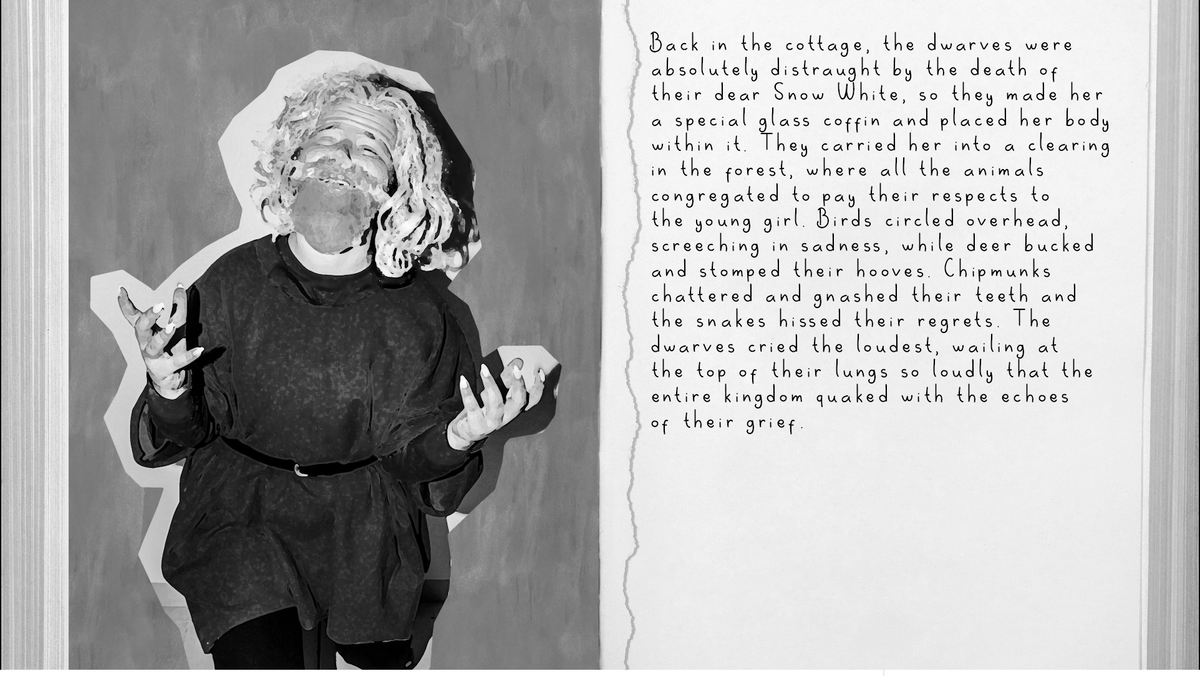 Back in the cottage, the dwarves were
absolutely distraught by the death of
their dear Snow White, so they made her
a special glass coffin and placed her body
within it. They carried her into a clearing
in the forest, where all the animals
congregated to pay their respects to
the young girl. Birds circled overhead,
screeching in sadness, while deer bucked
and stomped their hooves. Chipmunks
chattered and gnashed their teeth and
the snakes hissed their regrets. The
dwarves cried the loudest, wailing at
the top of their lungs so loudly that the
entire kingdom quaked with the echoes
of their grief.